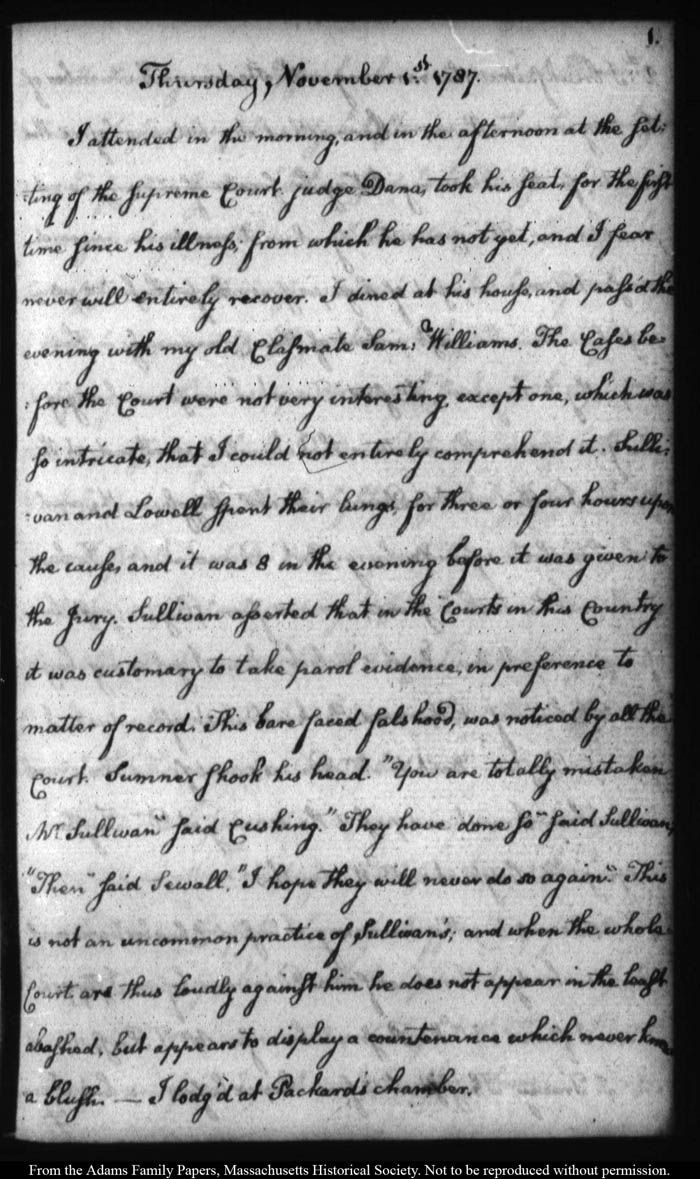 1.
Thursday, November 1.st 1787.
I attended in the morning, and in the afternoon at the set:
:ting of the supreme Court. judge Dana, took his seat, for the first
time since his illness; from which he has not yet, and I fear
never will entirely recover. I dined at his house, and pass'd the
evening with my old Classmate Sam: Williams. The Cases be:
:fore the Court were not very interesting except one, which was
so intricate, that I could not entirely comprehend it. Sulli:
:van and Lowell spent their lungs, for three or four hours upon
the cause, and it was 8 in the evening before it was given to
the Jury. Sullivan asserted that in the Courts in this Country
it was customary to take parol evidence, in preference to
matter of record. This bare faced falshood, was noticed by all the
Court. Sumner shook his head. "You are totally mistaken
Mr. Sullivan" said Cushing. "They have done so" said Sullivan;
"Then" said Sewall, "I hope they will never do so again." This
is not an uncommon practice of Sullivan's; and when the whole
Court are thus loudly against him he does not appear in the least
abashed, but appears to display a countenance which never knew
a blush. — I lodg'd at Packard's chamber.
From the Adams Family Papers, Massachusetts Historical Society. Not to be reproduced without permission.